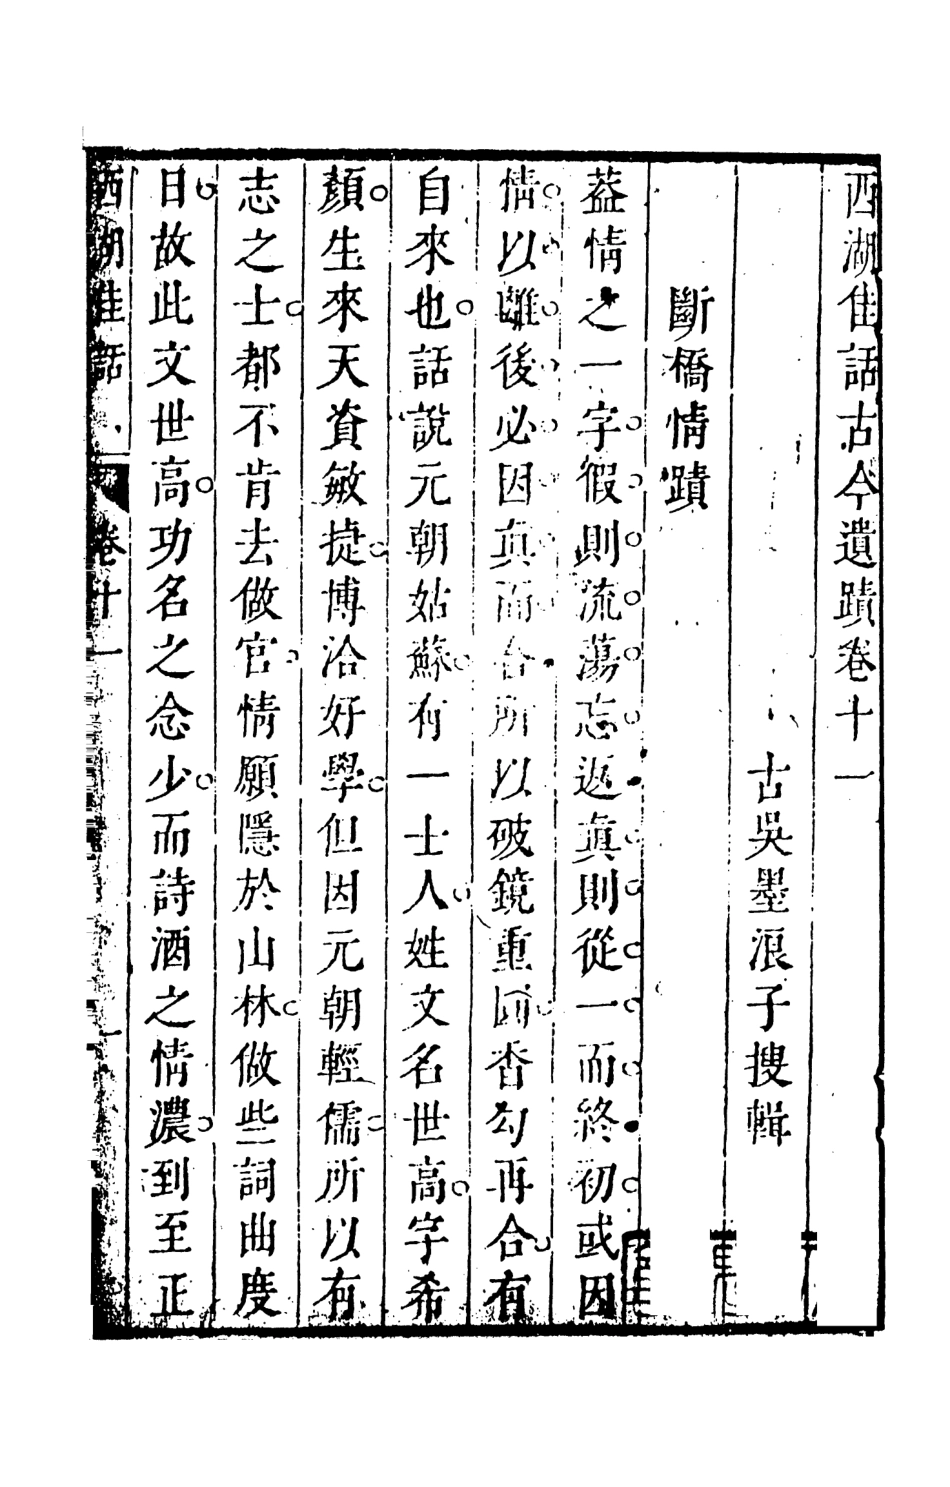 西湖佳話古今遺蹟卷十一
古吳墨浪子搜輯
斷橋情蹟
葢情之一字假則流蕩忘返真則從一而終初或因
情以離後必因真而合所以破鏡重圓香勾再合有
自來也話說元朝姑蘇有一士人姓文名世高字希
顏生來天資敏捷博洽好學但因元朝輕儒所以有
志之士都不肯去做官情願隱於山林做些詞曲度
日故此文世高功名之念少而詩酒之情濃到至正
西湖佳話 卷十一 一